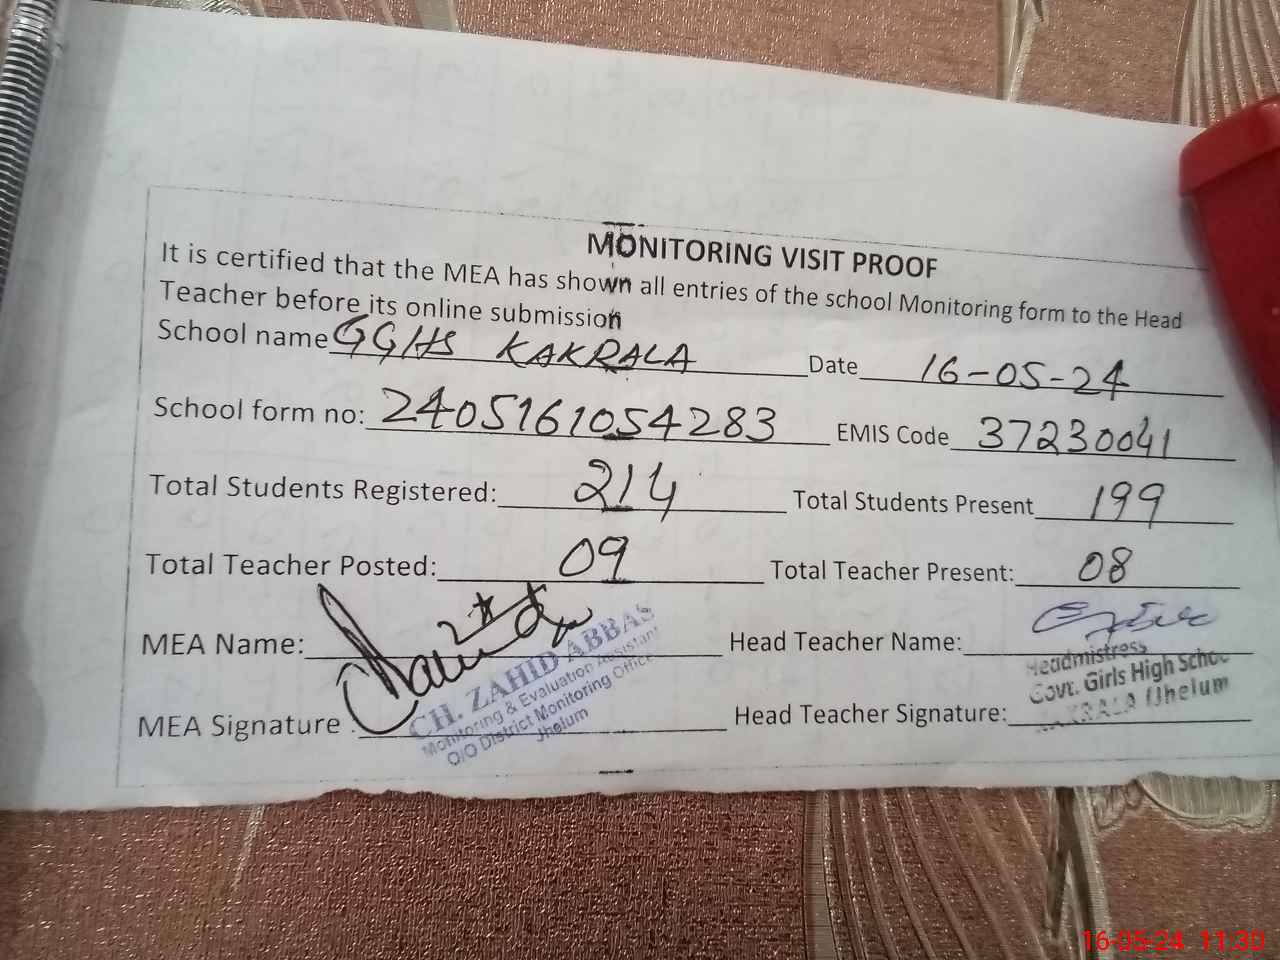 MONITORING VISIT PROOF
It is certified that the MEA has shown all entries of the school Monitoring form to the Head
Teacher before its online submission
School name GGHS KAKRALA Date 16-05-24
School form no: 2405161054283 EMIS Code 37230041
Total Students Registered: 214 Total Students Present 199
Total Teacher Posted: 09 Total Teacher Present: 08
MEA Name: Head Teacher Name:
MEA Signature Head Teacher Signature:
CH. ZAHID ABBAS
Monitoring & Evaluation Assistant
O/O District Monitoring Office
Jhelum
Headmistress
Govt. Girls High School
KAKRALA (Jhelum
16-05-24 11:30